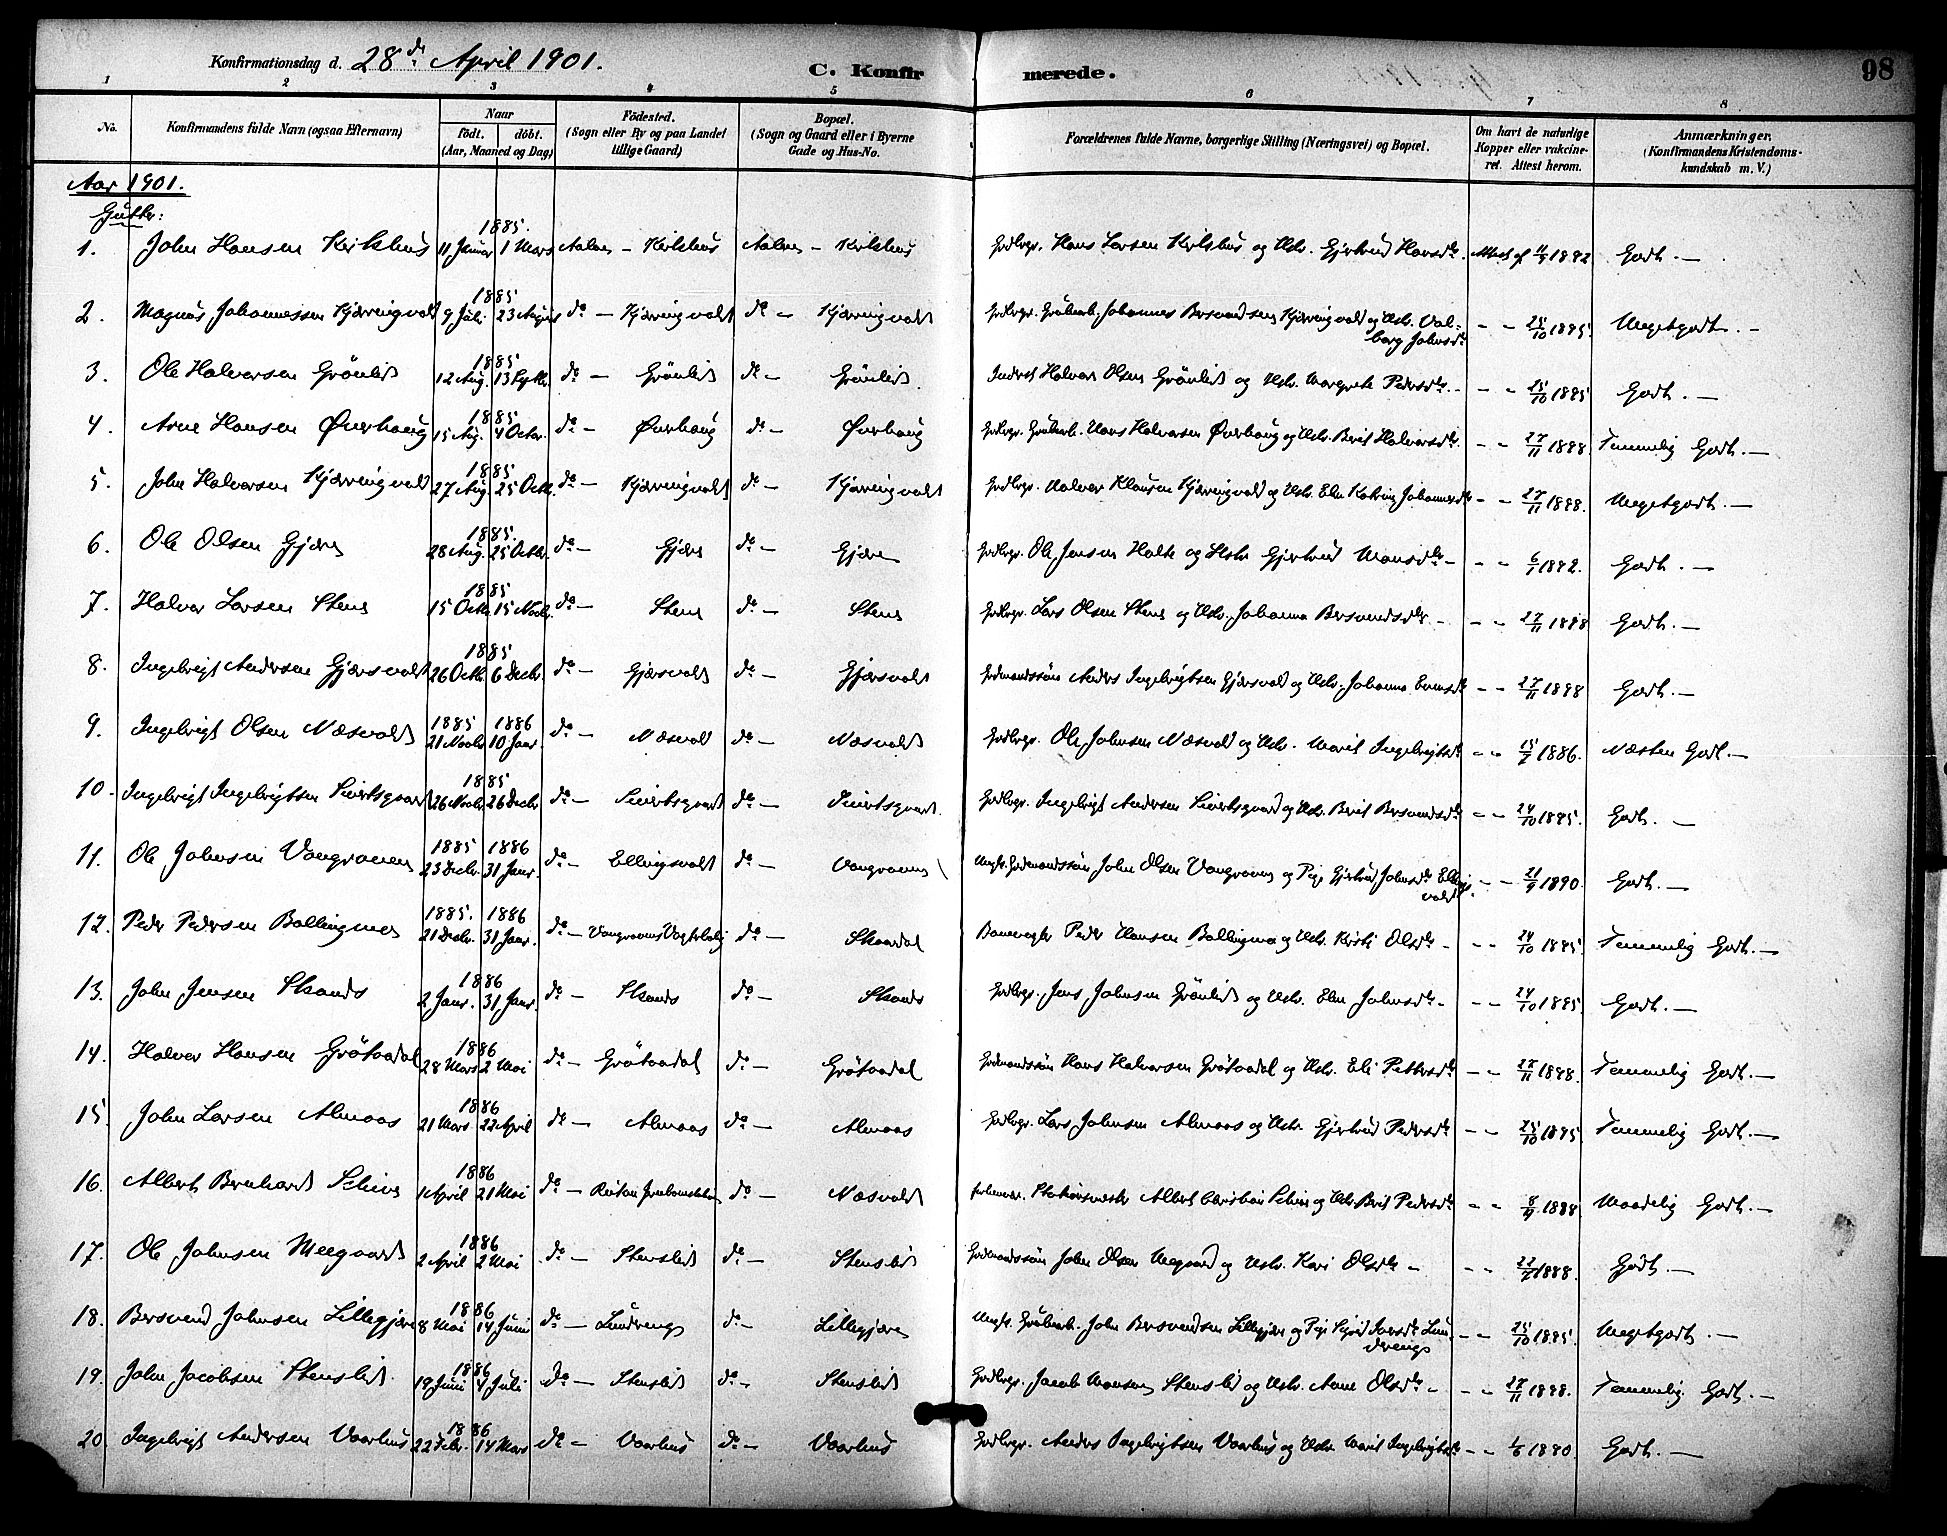 Konfirmationsdag d. 28de April 1901.
C. Konfirmerede.
98
1 2 3 4 5 6 7 8
No. Konfirmandens fulde Navn (ogsaa Efternavn) Naar födt. döbt. (Aar, Maaned og Dag) Födested. (Sogn eller By og paa Landet tillige Gaard) Bopæl. (Sogn og Gaard eller i Byerne Gade og Hus-No. Forældrenes fulde Navne, borgerlige Stilling (Næringsvei) og Bopæl. Om havt de naturlige Kopper eller vakcineret. Attest herom. Anmærkninger. (Konfirmandens Kristendomskundskab m. V.)
Aar 1901.
Gutter:
1. John Hansen Kirkhus 1885. 11 Januar 1 Mars Aalen – Kirkhus Aalen – Kirkhus Gbrgr. Hans Larsen Kirkhus og Hstr. Gjertrud Hansdtr. Attest af 1892 Godt. –
2. Magnus Johannessen Kjærringvold 1885 9 Juli 23 August do – Kjærringvold do – Kjærringvold Johannes Bersvendsen Kjærringvold og Hstr. Valborg Johnsdtr – – 25/10 1895. Megetgodt. –
3. Ole Halvorsen Grönlid 1885 12 Aug. 13 Septb. do – Grönlid do – Grönlid. Inderst Halvor Olsen Grönlid og Hstr. Margrete Pedersdtr. – – – 25/10 1895 Godt. –
4. Arne Hansen Øverhaug 1885 15 Aug. 4 Octbr. do – Øverhaug do – Øverhaug Hans Halvorsen Øverhaug og Hstr. Berit Halvorsdtr. – – 27/11 1888 Temmelig Godt. –
5. John Halvorsen Kjærringvold 1885 27 Aug. 25 Octb. do – Kjærringvold do – Kjærringvold Halvor Klausen Kjærringvold og Hstr. Elen Katrine Johannesdtr – – 27/11 1888. Megetgodt. –
6. Ole Olsen Gjære 1885. 28 Aug. 25 Octbr. do – Gjære do – Gjære Ole Jensen Holte og Hstr Gjertrud Monsdtr – – – 1892. Godt. –
7. Halvor Larsen Stens 1885 15 Octb. 15 Novb. do – Stens do – Stens Lars Olsen Stens og Hstr. Johanna Bersvendsdtr. – – – 27/11 1888 Godt. –
8. Ingebrigt Andersen Gjærsvold 1885 26 Octb. 6 Decbr. do – Gjærsvold do – Gjærsvold Gaardmandssön Anders Ingebrigtsen Gjærsvold og Hstr. Johanna – – 27/11 1888 Godt. –
9. Ingebrigt Olsen Næsvold 1885 1886 21 Novbr. 10 Janr. do – Næsvold do – Næsvold Ole Johnsen Næsvold og Hstr. Marit Ingebrigtsdtr – – 1886. Næsten Godt. –
10. Ingebrigt Ingebrigtsen Sivertsgaard 1885 26 Novbr. 26 Decbr. do – Sivertsgaard do – Sivertsgaard. Ingebrigt Andersen Sivertsgaard og Hstr. Berit Bersvendsdtr – – 24/10 1895. Godt. –
11. Ole Johnsen Vongraven 1885 1886 23 Decbr. 31 Janr. do – Ellingsvold do – Vongraven Ungk. Gaardmandssön John Olsen Vongraven og Pige Gjertrud Johnsdtr Ellingsvold – – 21/9 1890. Godt. –
12. Peder Pedersen Ballingmo 1885. 1886 21 Decbr. 31 Janr. do – Vongravens Vogterbolig do – Skaadal Banevogter Peder Hansen Ballingmo og Hstr. Kristi Olsdtr – – – 24/10 1895 Temmelig Godt. –
13. John Jensen Skands 1886 2 Janr. 31 Janr. do – Skands do – Skands Jens Johnsen Grönlid og Hstr. Elen Johnsdtr – – – 24/10 1895 Godt. –
14. Halvor Hansen Grötaadal 1886 28 Mars 2 Mai do – Grötaadal do – Grötaadal Gaardmandssön Hans Halvorsen Grötaadal og Hstr. Eli Pettersdtr – – 27/11 1888. Temmelig Godt. –
15. John Larsen Almaas 1886 21 Mars 22 April do – Almaas do – Almaas Lars Johnsen Almaas og Hstr. Gjertrud Pedersdtr – – 25/10 1895 Temmelig Godt. –
16. Albert Bernhard 1886 1 April 21 Mai do – do – Næsvold Albert Christian og Hstr Berit Pedersdtr – – 1888 Maadelig Godt. –
17. Ole Johnsen Meegaard 1886 2 April 2 Mai do – Stenslid do – Stenslid Gaardmandssön John Olsen Meegaard og Hstr. Kari Olsdtr – – – 1888. Godt. –
18. Bersvend Johnsen Lillegjære 1886 8 Mai 14 Juni do – Lundreng do – Lillegjære Ungk. John Bersvendsen Lillegjære og Pige Sigrid Lundreng – – 25/10 1895. Megetgodt. –
19. John Jacobsen Stenslid. 1886 19 Juni 4 Juli do – Stenslid do – Stenslid Jacob Monsen Stenslid og Hstr. Anne Olsdtr – – – 27/11 1888. Temmelig Godt. –
20. Ingebrigt Andersen Vaarhus 1886 22 Febr. 14 Mars do – Vaarhus do – Vaarhus Anders Ingebrigtsen Vaarhus og Hstr Marit Ingebrigtsdtr – – 1890. Godt. –